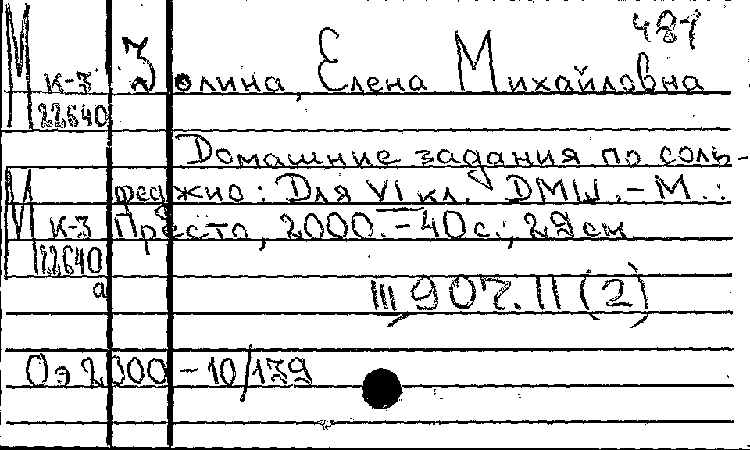 481
М К-3 Золина, Елена Михайловна
22640
Домашние задания по соль-
феджио: Для VI кл. ДМШ. - М.:
М К-3 Престо, 2000. - 40 с.; 29 см
22640
а
III, 907. II (2)
Оэ 2000 - 10/139